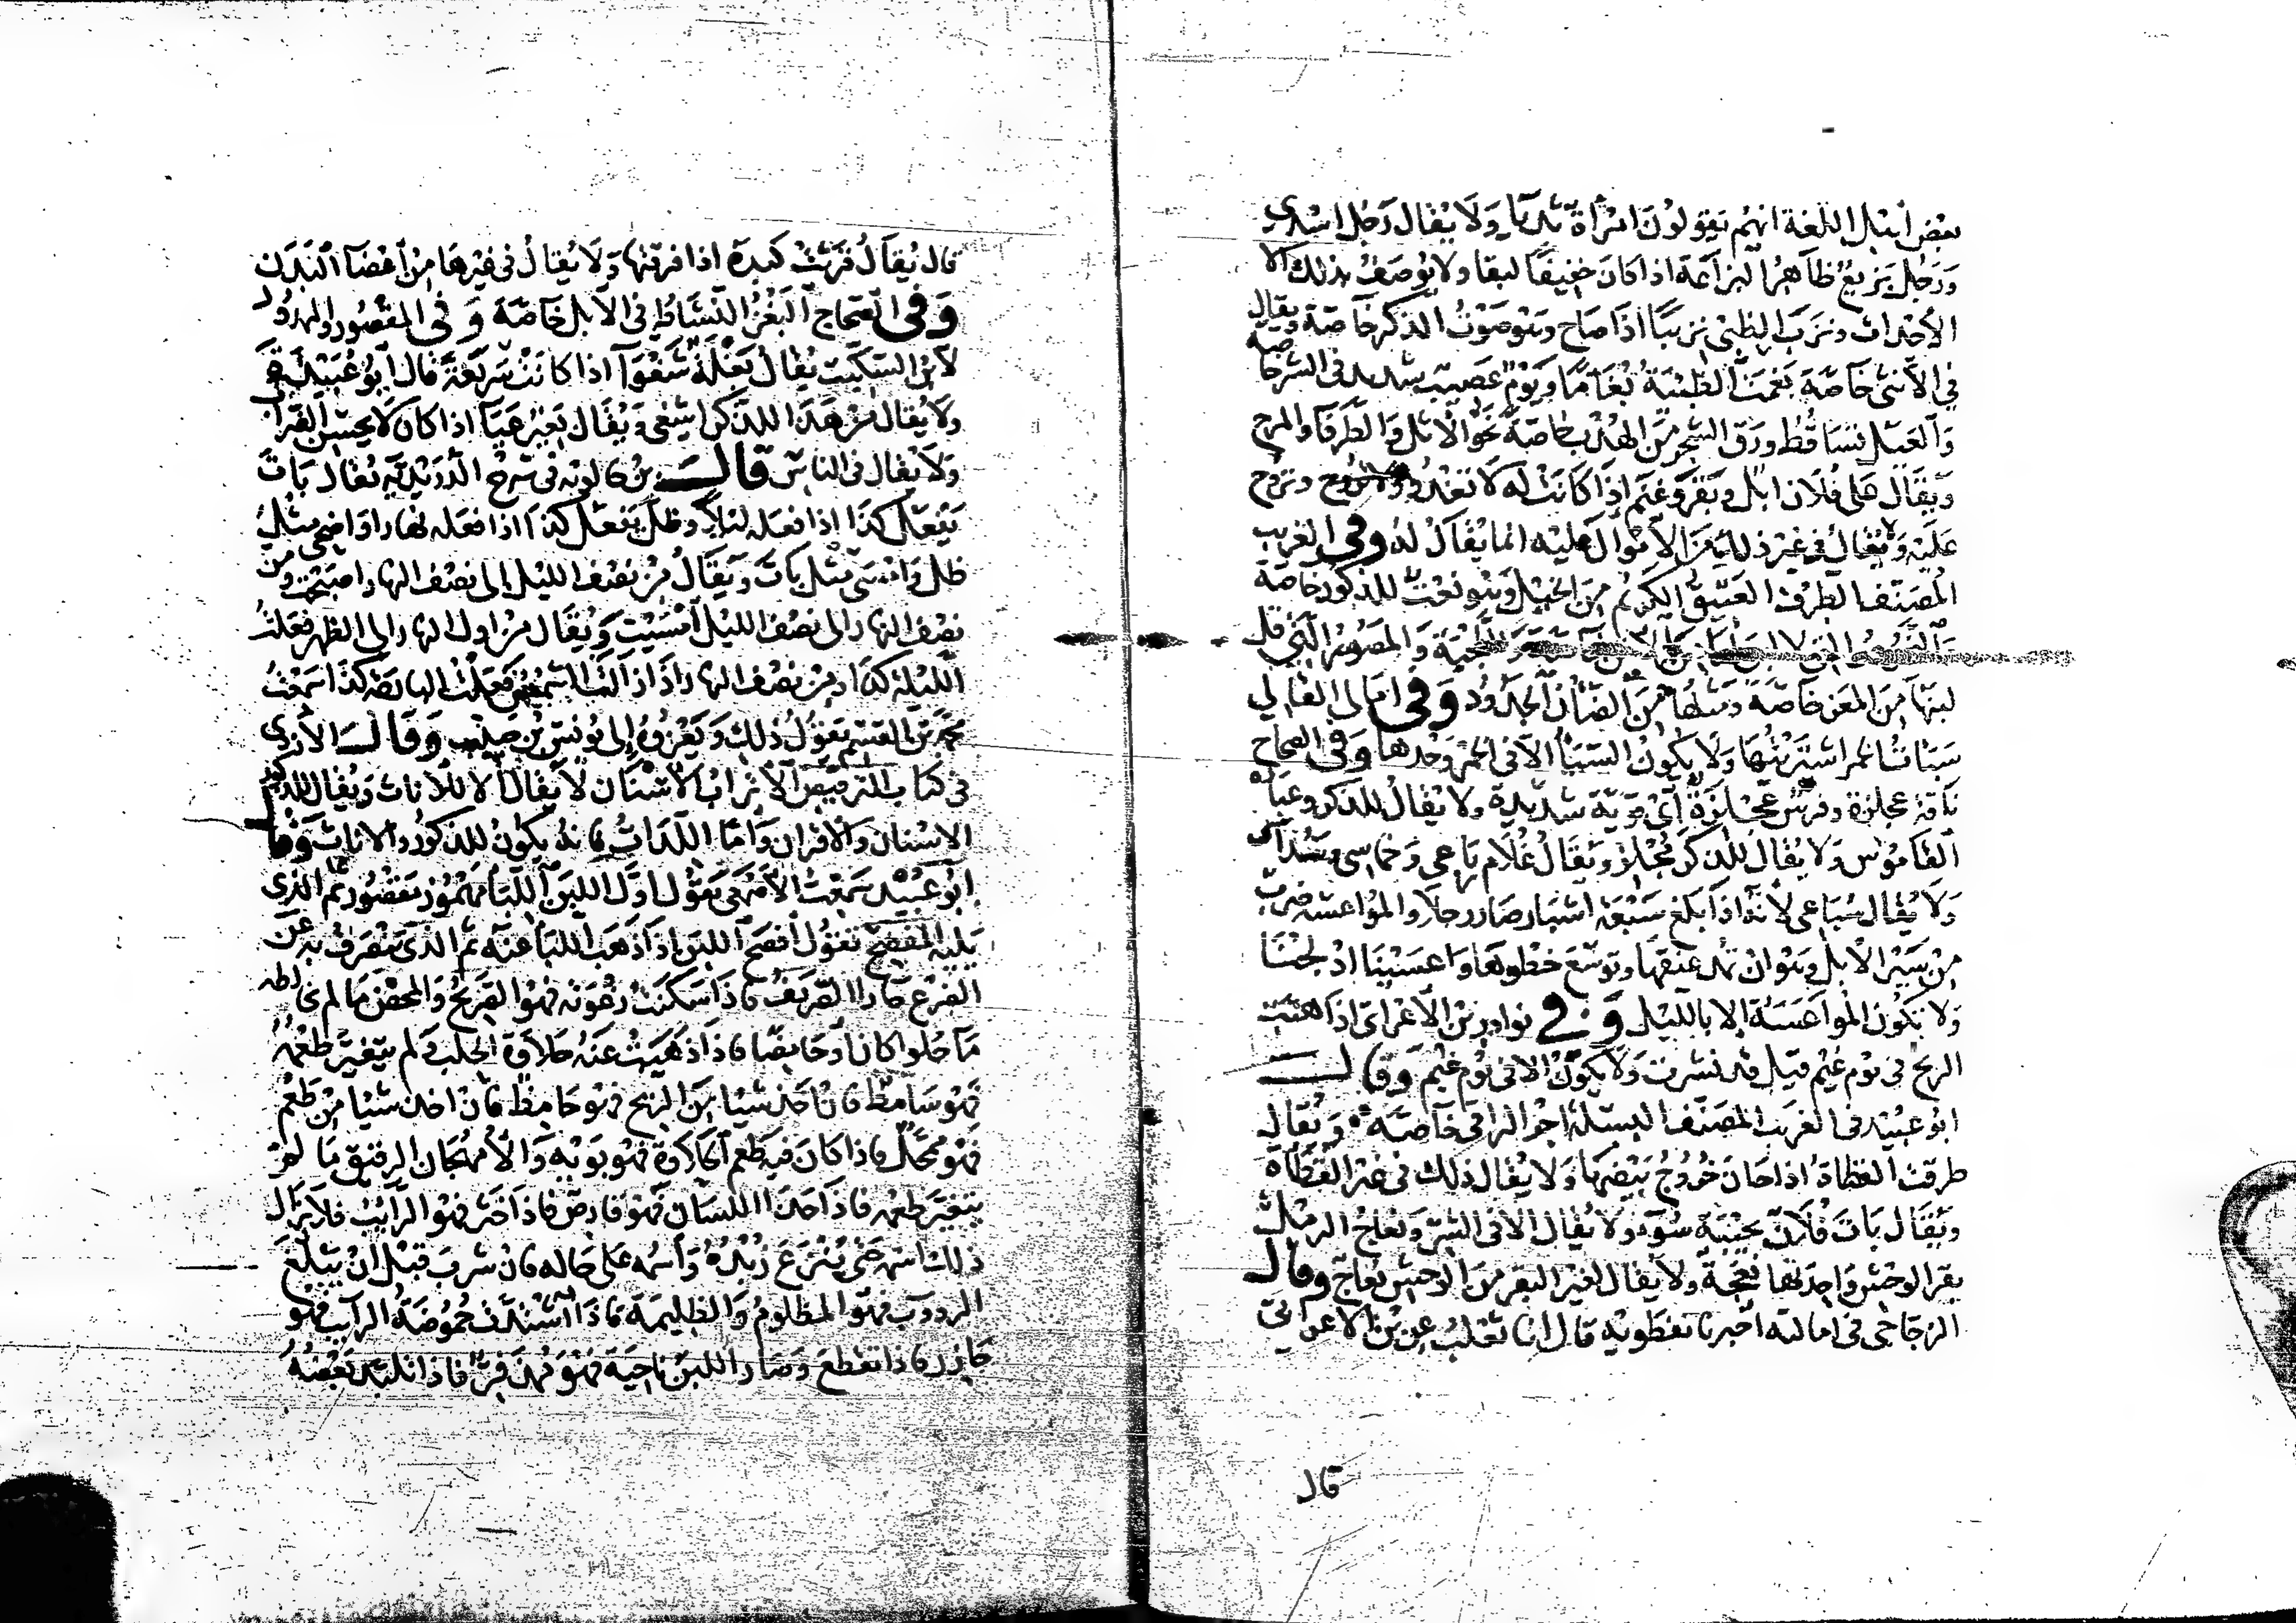 بعض أهل اللغة انهم يقولون امرأة ثدياء ولا يقال رجل اثدي
ورجل بزيع ظاهر البزاعة اذا كان خفيفا لبقا ولا يوصف بذلك الا
الأحداث ونزب الظبي نزيبا اذا صاح وهو صوت الذكر خاصة ويقال
في الأنثى خاصة بغمت الظبية بغاما ويوم عصيب شديد في الشر خاصة
والعبل تساقط ورق الشجر من الهدب خاصة نحو الأثل والطرفا والمرخ
ويقال على فلان ابل وبقر وغنم اذا كانت له لانها تغدو وتروح
عليه ولا يقال في غير ذلك من الاموال عليه انما يقال له وفي الغريب
المصنف الطرف العتيق الكريم من الخيل وهو نعت للذكور خاصة
والمصور التي قل
لبنها من المعز خاصة ومثلها من الضأن الجدود وفي امالي القالي
سبأت الخمر اشتريتها ولا يكون السباء الا في الخمر وحدها وفي الصحاح
ناقة عجلزة وفرس عجلزة أي قوية شديدة ولا يقال للذكر وعبارة
القاموس ولا يقال للذكر عجلز ويقال غلام رباعي وخماسي
ولا يقال سباعي لأنه اذا بلغ سبعة اشبار صار رجلا والمواعسة ضرب
من سير الابل وهو ان تمد عنقها وتوسع خطوها وواعسنا ادلجنا
ولا تكون المواعسة الا بالليل وفي نوادر بن الأعرابي اذا هبت
الريح في يوم غيم قيل قد نشرت ولا يكون الا في يوم غيم وقال
ابو عبيد في الغريب المصنف البسلة اجر الراقي خاصة ويقال
طرقت القطاة اذا حان خروج بيضها ولا يقال ذلك في غير القطاة
ويقال بات فلان بحيبة سوء ولا يقال الا في الشر ونعاج الرمل
بقر الوحش واحدتها نعجة ولا يقال لغير البقر من الوحش نعاج وقال
الزجاجي في اماليه اخبرنا نفطويه قال انا ثعلب عن بن الاعرابي
قال
قال يقال فرثت كبده اذا فرقتها ولا يقال في غيرها من اعضا البدن
وفي الصحاح البغز النشاط في الابل خاصة وفي المقصور والممدود
لابن السكيت يقال بغلة سفوا اذا كانت سريعة قال ابو عبيد
ولا يقال من هذا للذكر اسفى ويقال بعير عياء اذا كان لا يحسن الضراب
ولا يقال في الناس قال بن خالويه في شرح الدريدية يقال بات
يفعل كذا اذا فعله ليلا وظل يفعل كذا اذا فعله نهارا واضحى مثل
ظل وامسى مثل بات ويقال من نصف الليل إلى نصف النهار اصبحت ومن
نصف النهار الى نصف الليل امسيت ويقال من اول النهار الى الظهر فعلت
الليلة كذا ومن نصف النهار اذا زالت الشمس فعلت البارحة كذا سمعت
محمد بن القسم يقول ذلك ويعزوه إلى يونس بن حبيب وقال الأزدي
في كتاب الترقيص الأتراب الاسنان لا يقال الا للأناث ويقال للذكور
الاسنان والاقران وأما اللدات فانه يكون للذكور والاناث وقال
ابو عبيد سمعت الأصمعي يقول اول اللبن اللبأ مهموز مقصور ثم الذي
يليه المفصح يقول أفصح اللبن اذا ذهب اللبأ عنه ثم الذي ينصرف به عن
الضرع حارا الصريف فاذا سكنت رغوته فهو الصريح والمحض ما لم يخالطه
ما حلوا كان أو حامضا فاذا ذهبت عنه حلاوة الحلب ولم يتغير طعمه
فهو سامط فان اخذ شيئا من الريح فهو خامط فان اخذ شيئا من طعم
فهو ممحل فاذا كان فيه طعم الحلاوة فهو قوهة والأمهجان الرقيق ما لم
يتغير طعمه فاذا حذى اللسان فهو قارص فاذا خثر فهو الرائب فلا يزال
ذلك اسمه حتى ينزع زبده واسمه على حاله فان شرب قبل ان يبلغ
الرؤوب فهو المظلوم والظليمة فاذا اشتدت حموضة الرائب فهو
حازر فاذا تقطع وصار اللبن ناحية فهو ممذقر فاذا تلبد بعضه